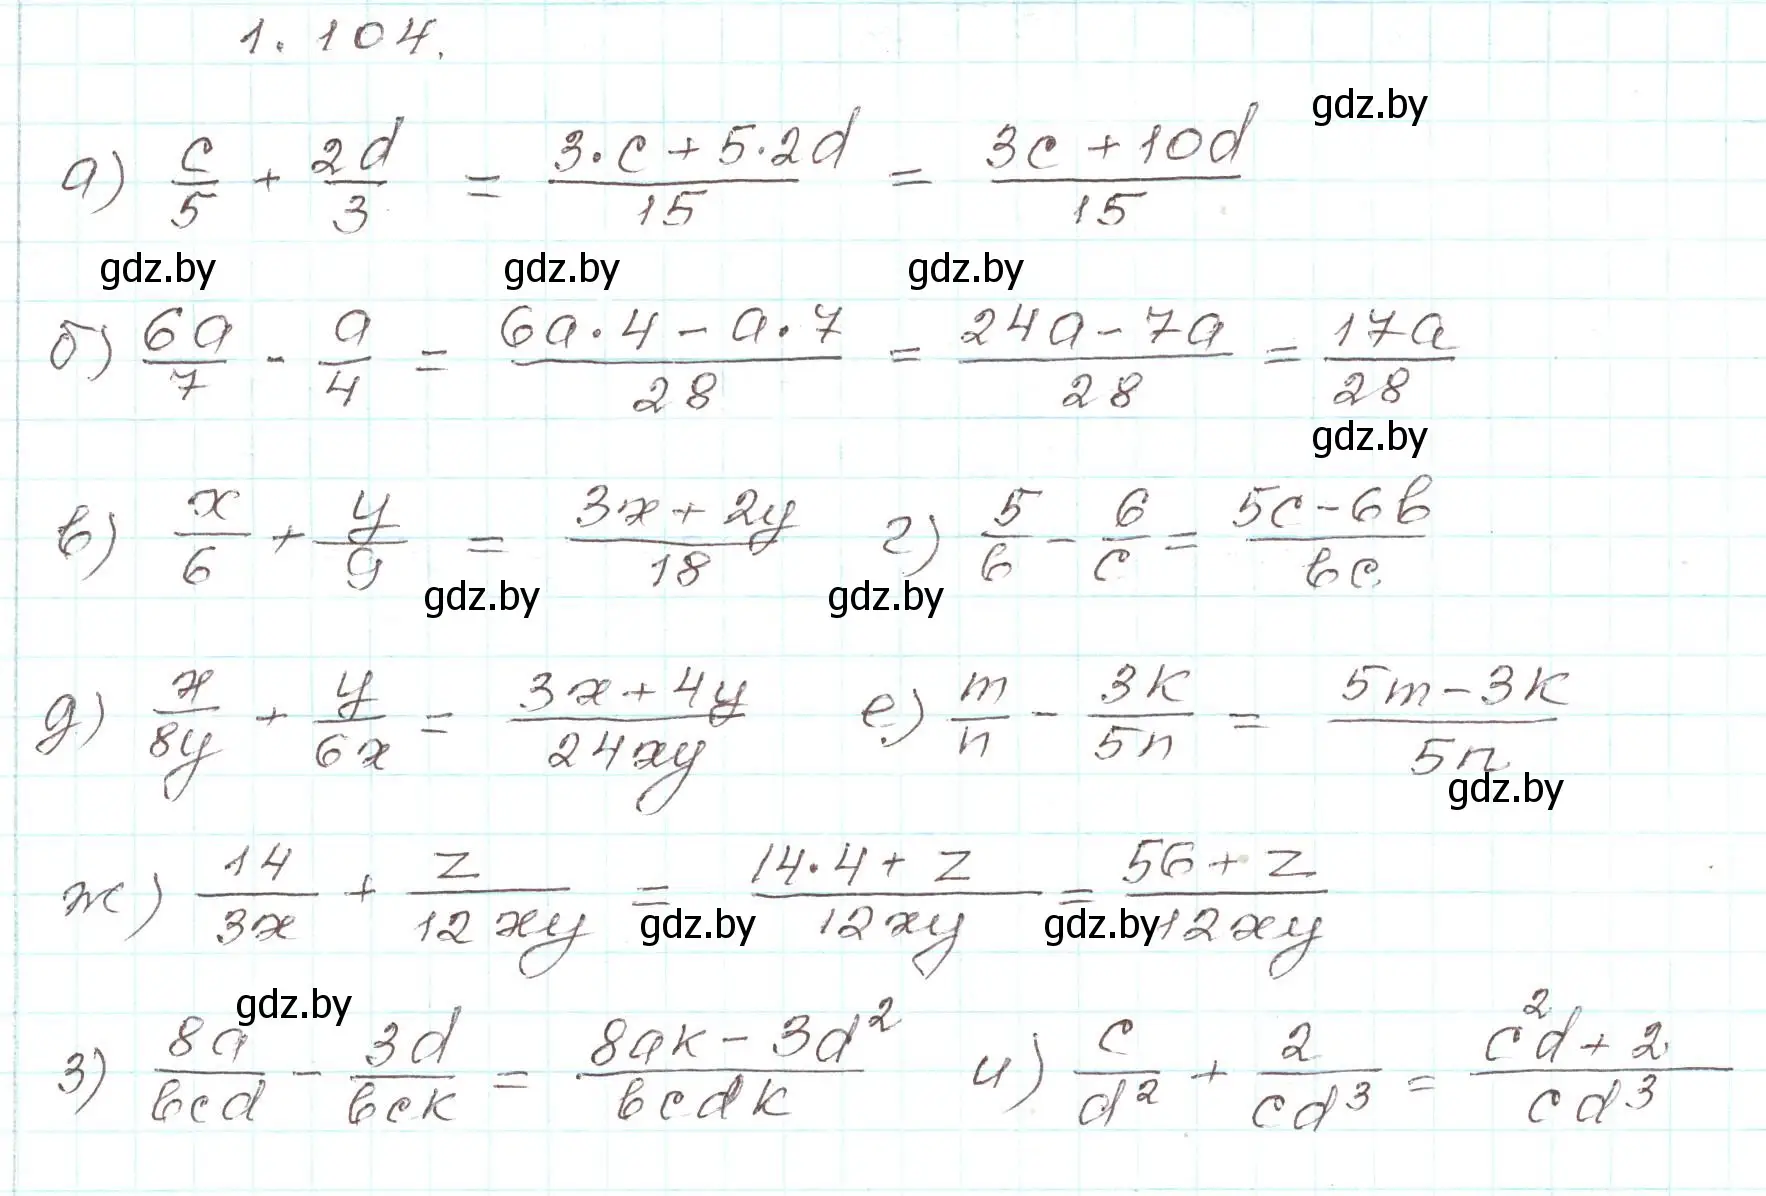 1.104.
gdz.by
а) c/5 + 2d/3 = (3·c+5·2d)/15 = (3c+10d)/15
gdz.by gdz.by gdz.by
б) 6a/7 - a/4 = (6a·4-a·7)/28 = (24a-7a)/28 = 17a/28
gdz.by
в) x/6 + y/9 = (3x+2y)/18 г) 5/b - 6/c = (5c-6b)/bc
gdz.by gdz.by
д) x/8y + y/6x = (3x+4y)/24xy е) m/n - 3k/5n = (5m-3k)/5n
gdz.by
ж) 14/3x + z/12xy = (14·4+z)/12xy = (56+z)/12xy
gdz.by gdz.by
gdz.by
з) 8a/bcd - 3d/bck = (8ak-3d²)/bcdk и) c/d² + 2/cd³ = (c²d+2)/cd³